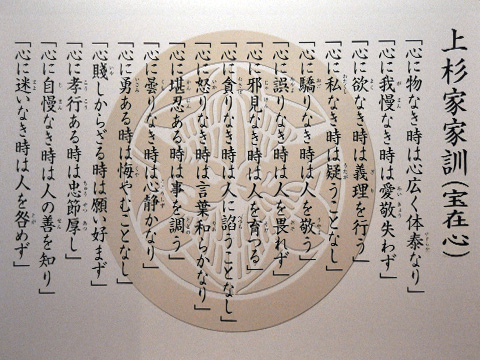 上杉家家訓(宝在心)
「心に物なき時は心広く体泰なり」
「心に我慢なき時は愛敬失わず」
「心に欲なき時は義理を行う」
「心に私なき時は疑うことなし」
「心に驕りなき時は人を敬う」
「心に誤りなき時は人を畏れず」
「心に邪見なき時は人を育つる」
「心に貪りなき時は人に諂うことなし」
「心に怒りなき時は言葉和らかなり」
「心に堪忍ある時は事を調う」
「心に曇りなき時は心静かなり」
「心に勇ある時は悔やむことなし」
「心賤しからざる時は願い好まず」
「心に孝行ある時は忠節厚し」
「心に自慢なき時は人の善を知り」
「心に迷いなき時は人を咎めず」